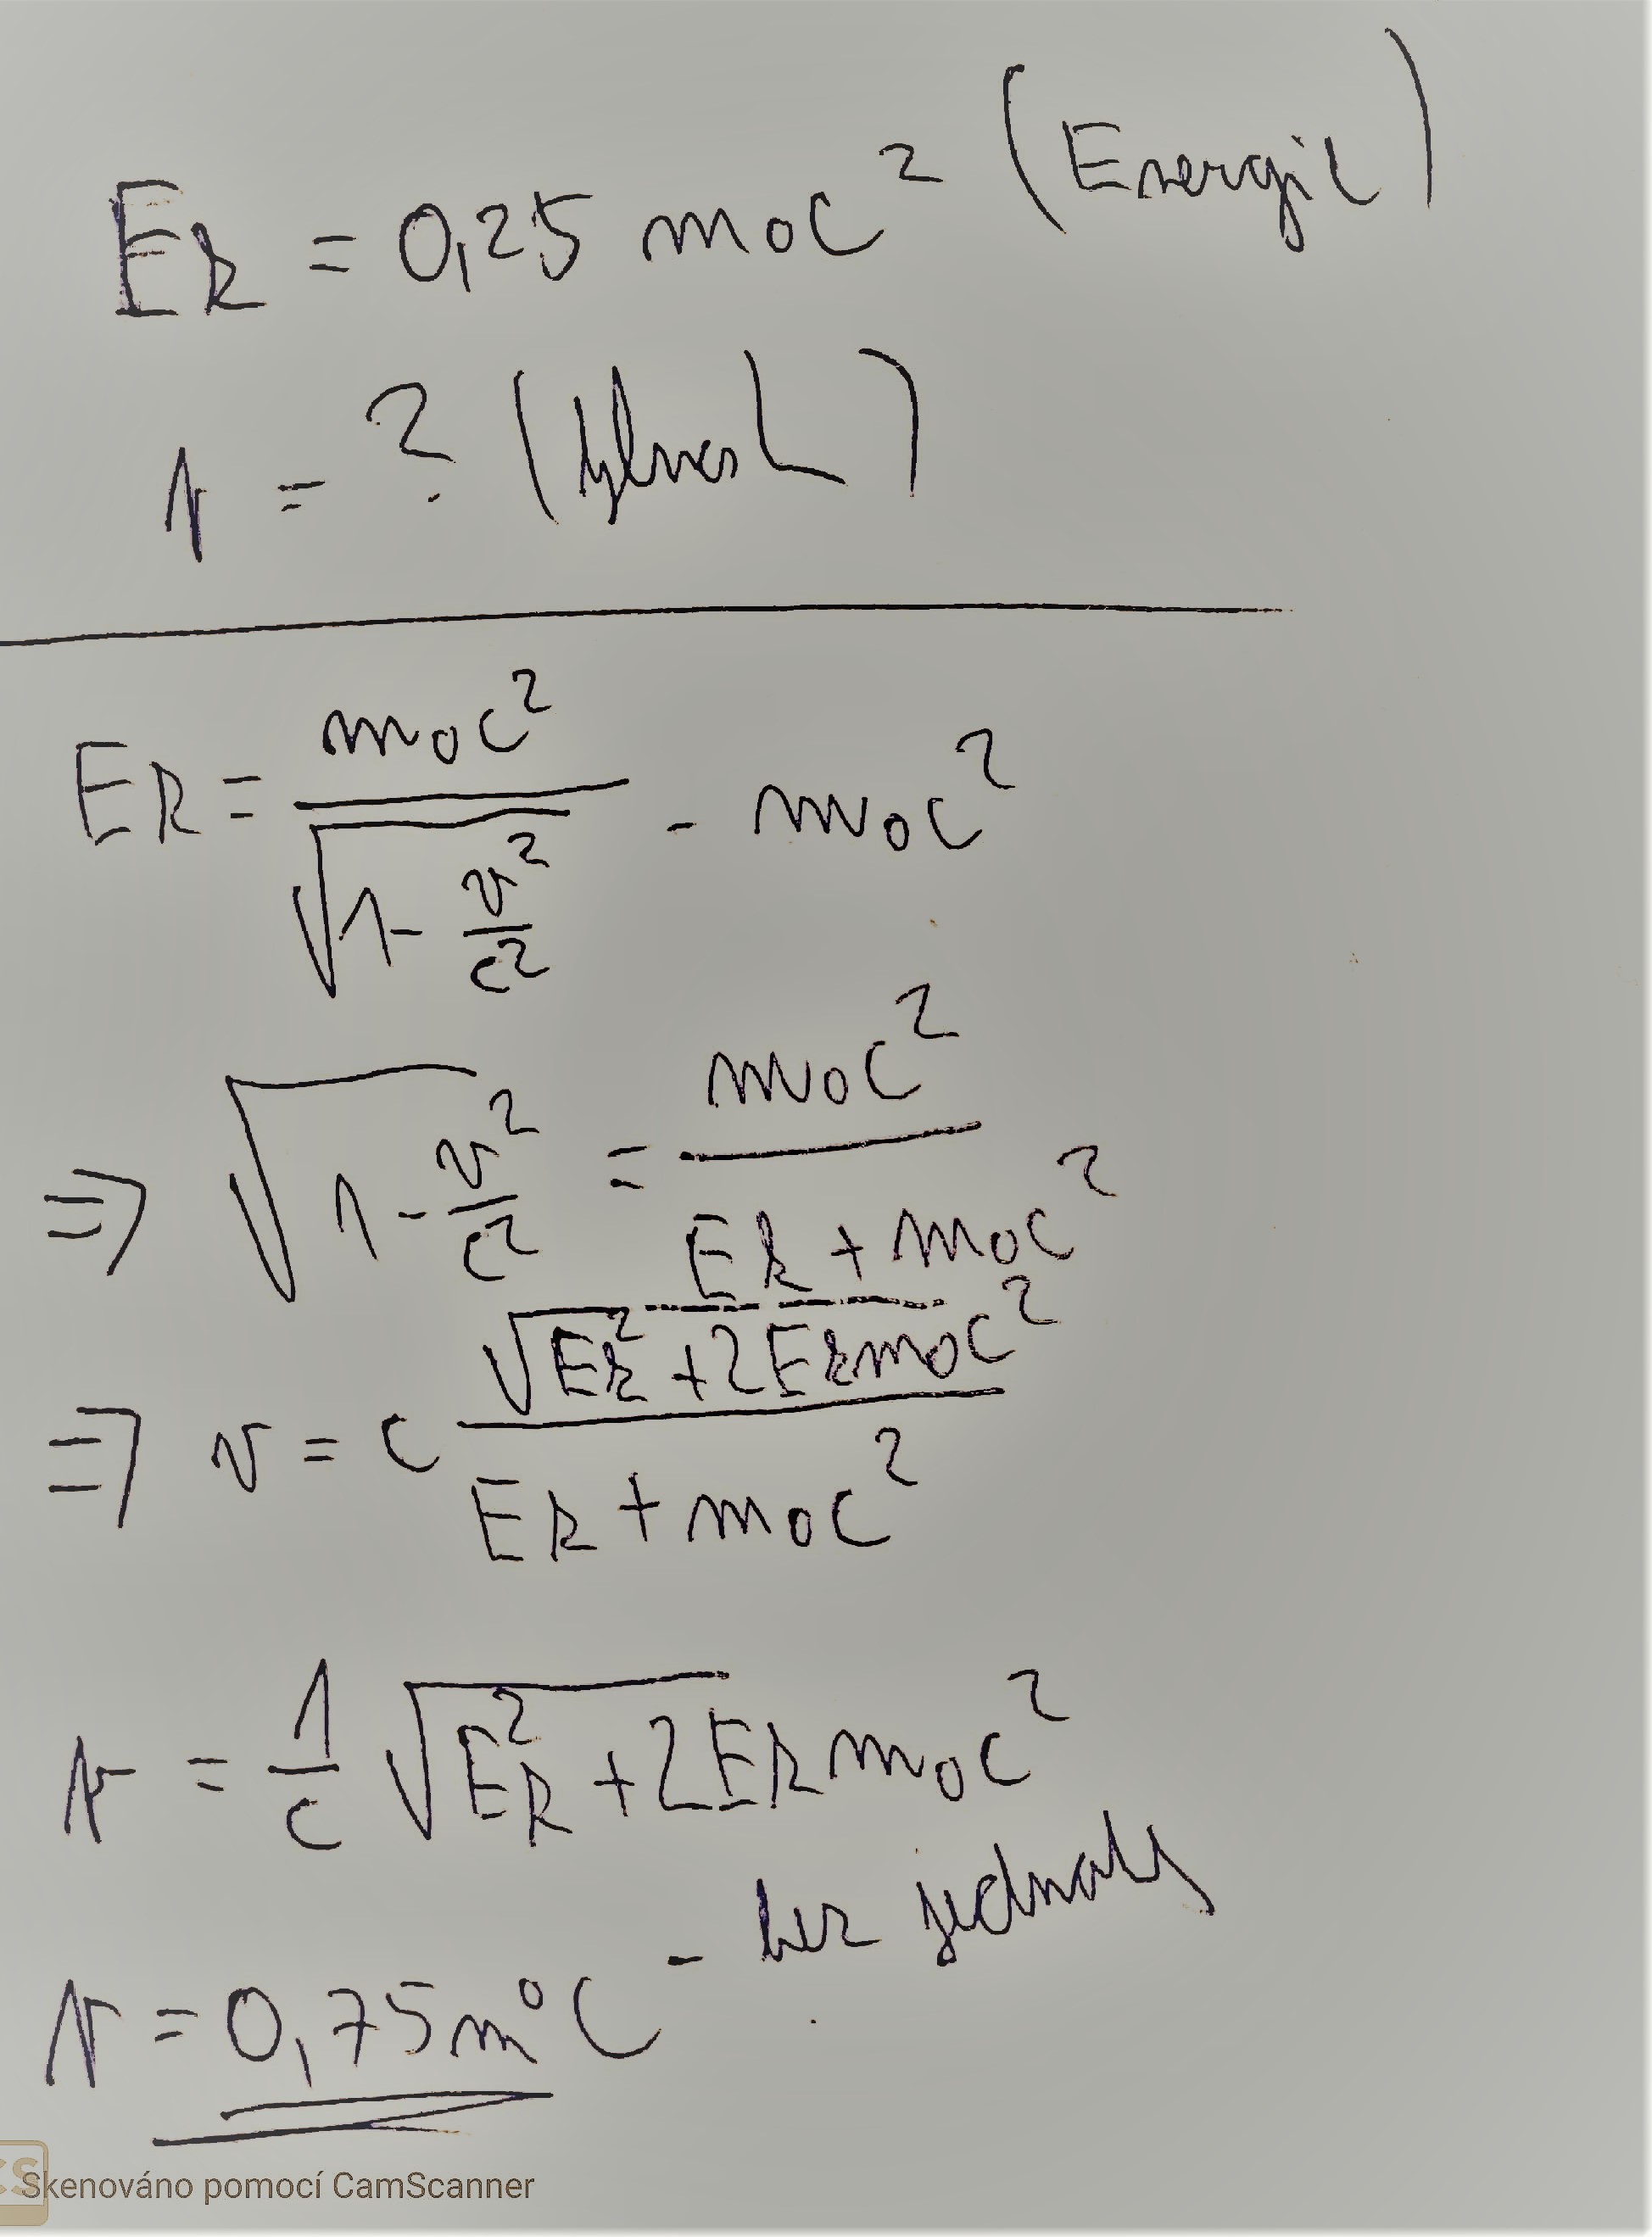 E_k = 0,25 m₀c² (Energie)
p = ? (hybnost)
E_k = m₀c² / √(1 - v²/c²) - m₀c²
⇒ √(1 - v²/c²) = m₀c² / (E_k + m₀c²)
⇒ v = c √(E_k² + 2E_k m₀c²) / (E_k + m₀c²)
p = 1/c √(E_k² + 2E_k m₀c²)
p = 0,75 m₀c - bez jednotky
Skenováno pomocí CamScanner